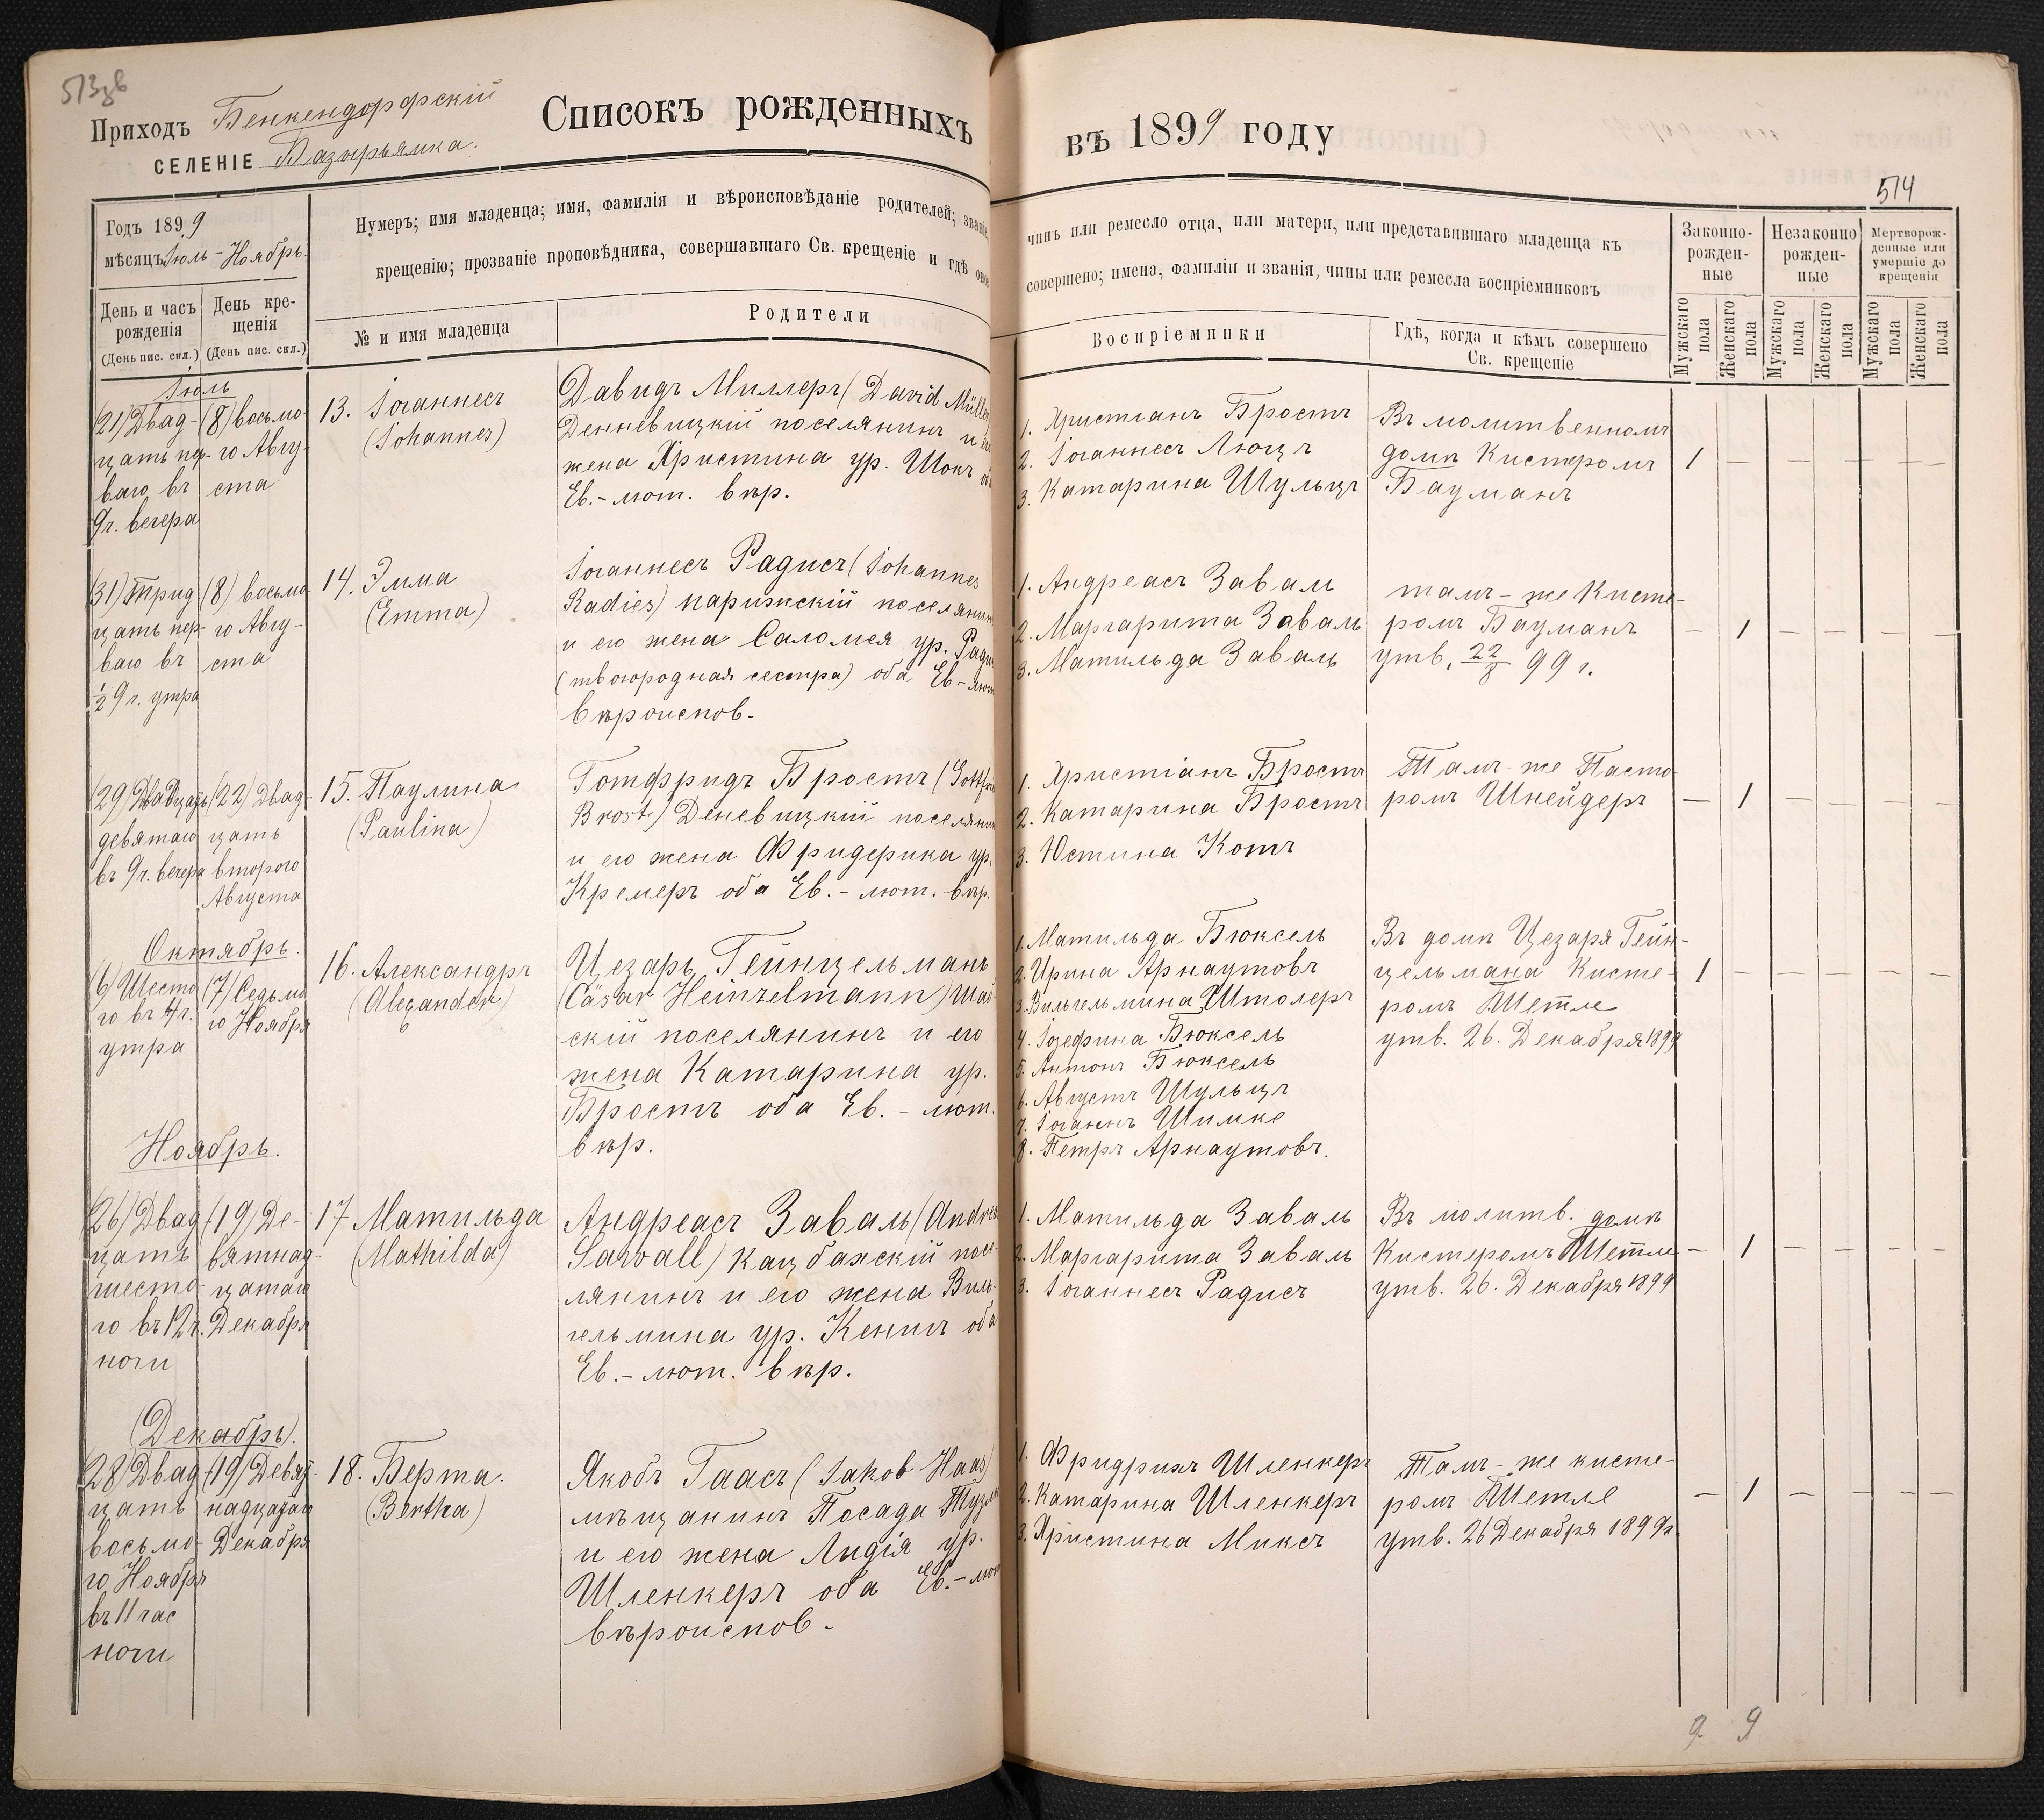 513об
Приходъ Бенкендорфскій
СЕЛЕНІЕ Базирьямка.
Списокъ рожденныхъ
въ 1899 году
514
Годъ 1899
мѣсяцъ Іюль-Ноябрь.
День и часъ рожденія
(День пис. скл.)
День крещенія
(День пис. скл.)
Нумеръ; имя младенца; имя, фамилія и вѣроисповѣданіе родителей; званіе,
крещенію; прозваніе проповѣдника, совершавшаго Св. крещеніе и гдѣ оное
№ и имя младенца
Родители
чинъ или ремесло отца, или матери, или представившаго младенца къ
совершено; имена, фамиліи и званія, чины или ремесла воспріемниковъ
Воспріемники
Гдѣ, когда и кѣмъ совершено
Св. крещеніе
Законно-
рожден-
ные
Незаконно
рожден-
ные
Мертворож-
денные или
умершіе до
крещенія
Мужскаго пола
Женскаго пола
Мужскаго пола
Женскаго пола
Мужскаго пола
Женскаго пола
Іюль
(21) Двад-
цать пер-
ваго въ
9ч. вечера
(8) восьмо-
го Авгу-
ста
13. Іоганнесъ
(Johannes)
Давидъ Миллеръ (David Müller)
Денневицкій поселянинъ и
жена Христина ур. Шокъ
Ев.-лют. вѣр.
1. Христіанъ Бростъ
2. Іоганнесъ Люцъ
3. Катарина Шульцъ
Въ молитвенномъ
домѣ Кистромъ
Бауманъ
1 — — — —
(31) Трид
цать пер-
ваго въ
½ 9ч. утра
(8) восьмо
го Авгу-
ста
14. Эмма
(Emma)
Іоганнесъ Радисъ (Johannes
Radies) парижскій поселянин
и его жена Саломея ур. Радис
(твоюродная сестра) оба Ев-лют
вѣроиспов.
1. Андреасъ Заваль
2. Маргарита Заваль
3. Матильда Заваль
тамъ-же Кисте-
ромъ Бауманъ
утв. 22/8 99 г.
— 1 — — — —
(29) Двадцать
девятаго
въ 9ч. вечера
(22) Двад-
цать
второго
Августа
15. Паулина
(Paulina)
Готфридъ Бростъ (Gottfried
Brost) Деневицкій поселянин
и его жена Фридерика ур.
Кремеръ оба Ев.-лют. вѣр.
1. Христіанъ Бростъ
2. Катарина Бростъ
3. Юстина Котъ
Тамъ-же Пасто-
ромъ Шнейдеръ
— 1 — — — —
Октябрь.
(6) Шесто
го въ 4ч.
утра
(7) Седьмо
го Ноября
16. Александръ
(Alexander)
Цезарь Гейнцельманъ
(Cäsar Heinzelmann) Шаб-
скій поселянинъ и его
жена Катарина ур.
Бростъ оба Ев.-лют.
вѣр.
1. Матильда Бюксель
2. Ирина Арнаутовъ
3. Вильгельмина Штолеръ
4. Іозефина Бюксель
5. Антонъ Бюксель
6. Августъ Шульцъ
7. Іоганнъ Шимке
8. Петръ Арнаутовъ.
Въ домѣ Цезаря Гейн-
цельмана Кисте-
ромъ Шетле
утв. 26. Декабря 1899
1 — — — — —
Ноябрь.
(26) Двад
цать
шесто-
го въ 12ч.
ночи
(19) Де-
вятнад-
цатаго
Декабря
17 Матильда
(Mathilda)
Андреасъ Заваль (Andreas
Sawall) Кацбахскій посе-
лянинъ и его жена Виль-
гельмина ур. Кенигъ оба
Ев.-лют. вѣр.
1. Матильда Заваль
2. Маргарита Заваль
3. Іоганнесъ Радисъ
Въ молитв. домѣ
Кистеромъ Шетле
утв. 26. Декабря 1899
— 1 — — — —
(Декабрь).
(28) Двад
цать
восьмо-
го Ноября
въ 11 час
ночи
(19) Девят-
надцатаго
Декабря
18. Берта.
(Bertha)
Якобъ Гаасъ (Jakob Haas)
мѣщанинъ Посада Тузлы
и его жена Лидія ур.
Шленкеръ оба Ев.-лют
вѣроиспов.
1. Фридрихъ Шленкеръ
2. Катарина Шленкеръ
3. Христина Миксъ
Тамъ-же кисте-
ромъ Шетле
утв. 26 Декабря 1899г.
— 1 — — — —
9 9